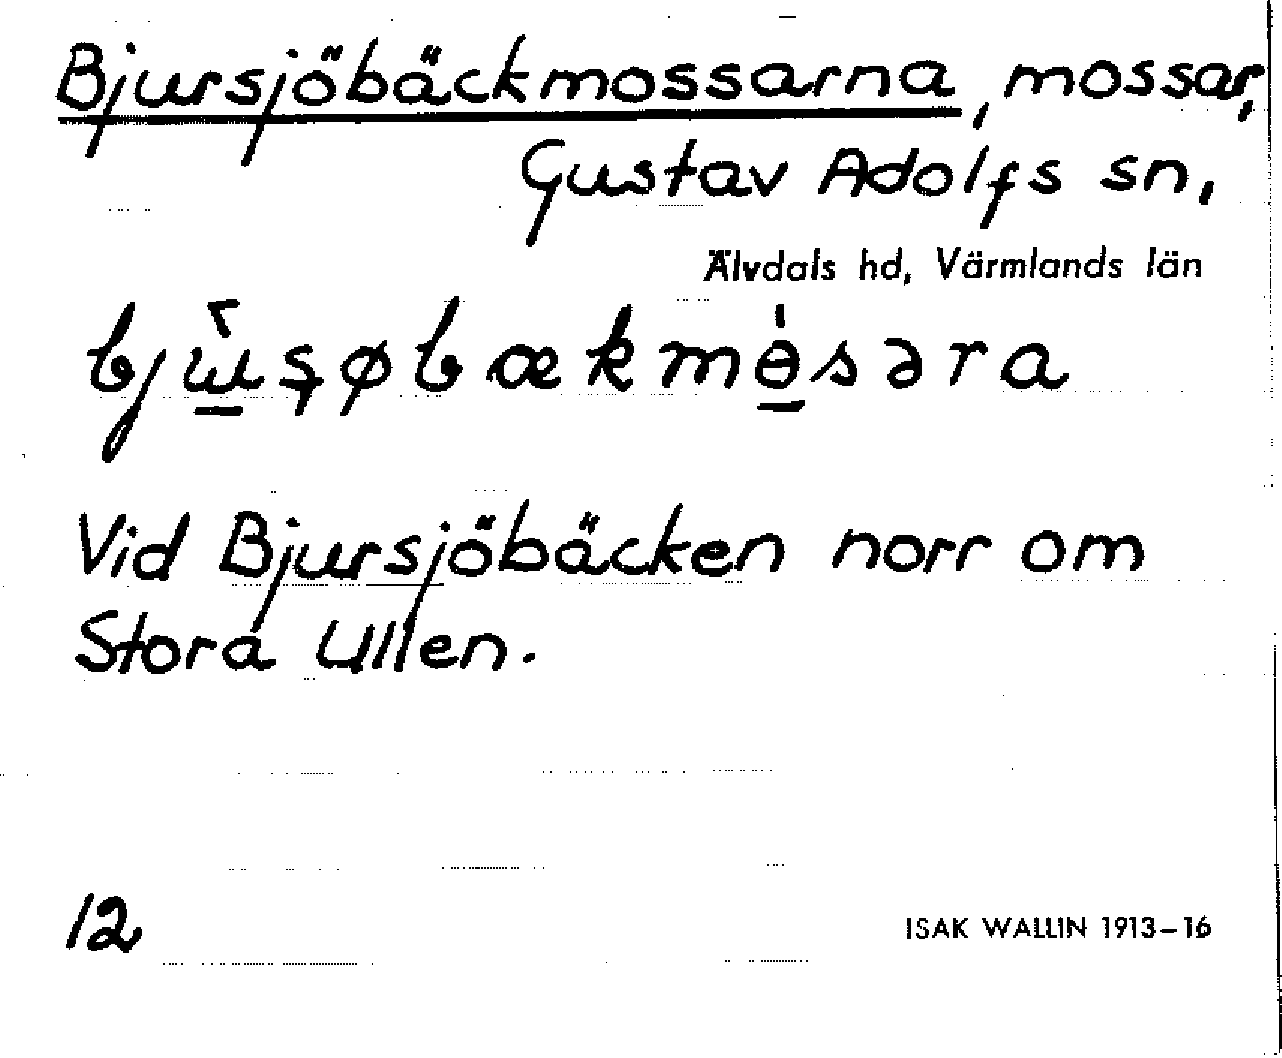 Bjursjöbäckmossarna, mossar,
Gustav Adolfs sn,
Älvdals hd, Värmlands län
Vid Bjursjöbäcken norr om
Stora Ullen.
12
ISAK WALLIN 1913-16